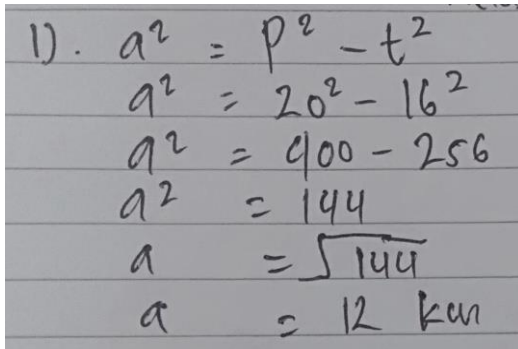 1). a² = p² - t²
a² = 20² - 16²
a² = 400 - 256
a² = 144
a = √144
a = 12 km